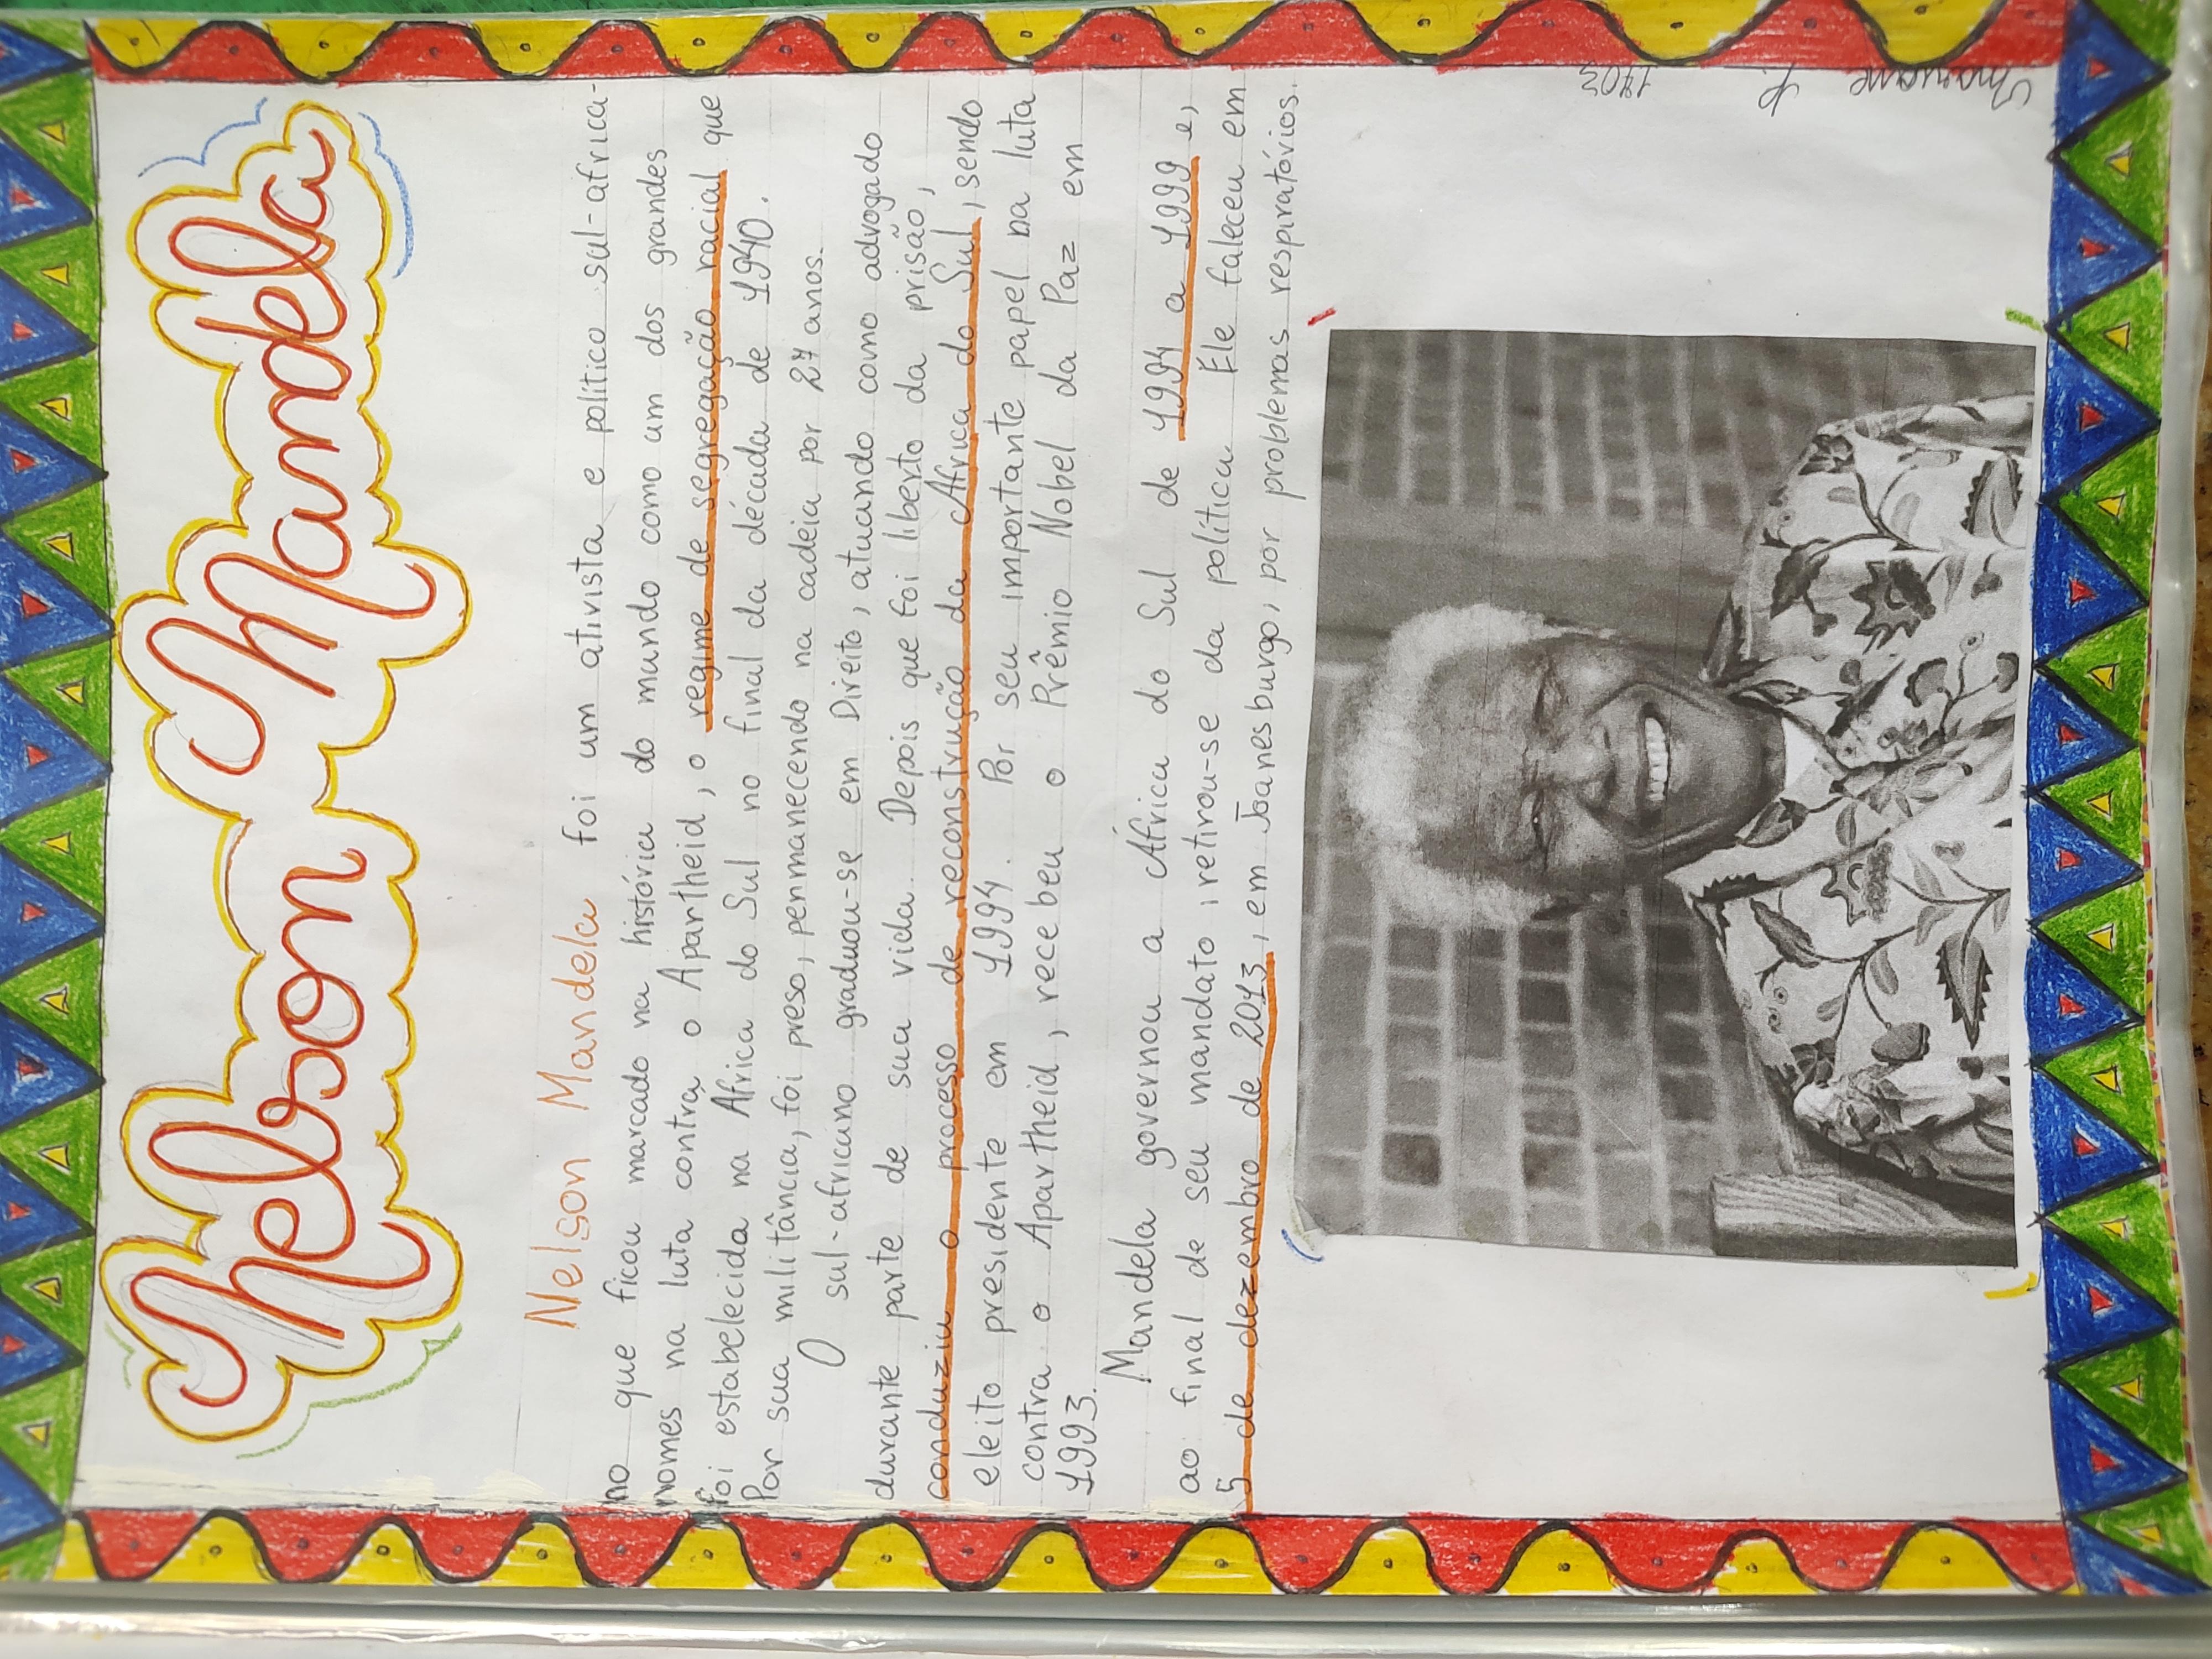 Nelson Mandela
Nelson Mandela foi um ativista e político sul-africa-
no que ficou marcado na históriea do mundo como um dos grandes
nomes na luta contra o Apartheid, o regime de segregação racial que
foi estabelecida na África do Sul no final da década de 1940.
Por sua militância, foi preso, permanecendo na cadeia por 27 anos.
O sul-africano graduou-se em Direito, atuando como advogado
durante parte de sua vida. Depois que foi liberto da prisão,
conduziu o processo de reconstrução da África do Sul, sendo
eleito presidente em 1994. Por seu importante papel na luta
contra o Apartheid, recebeu o Prêmio Nobel da Paz em
1993.
Mandela governou a África do Sul de 1994 a 1999 e,
ao final de seu mandato, retirou-se da política. Ele faleceu em
5 de dezembro de 2013, em Joanesburgo, por problemas respiratórios.
1703